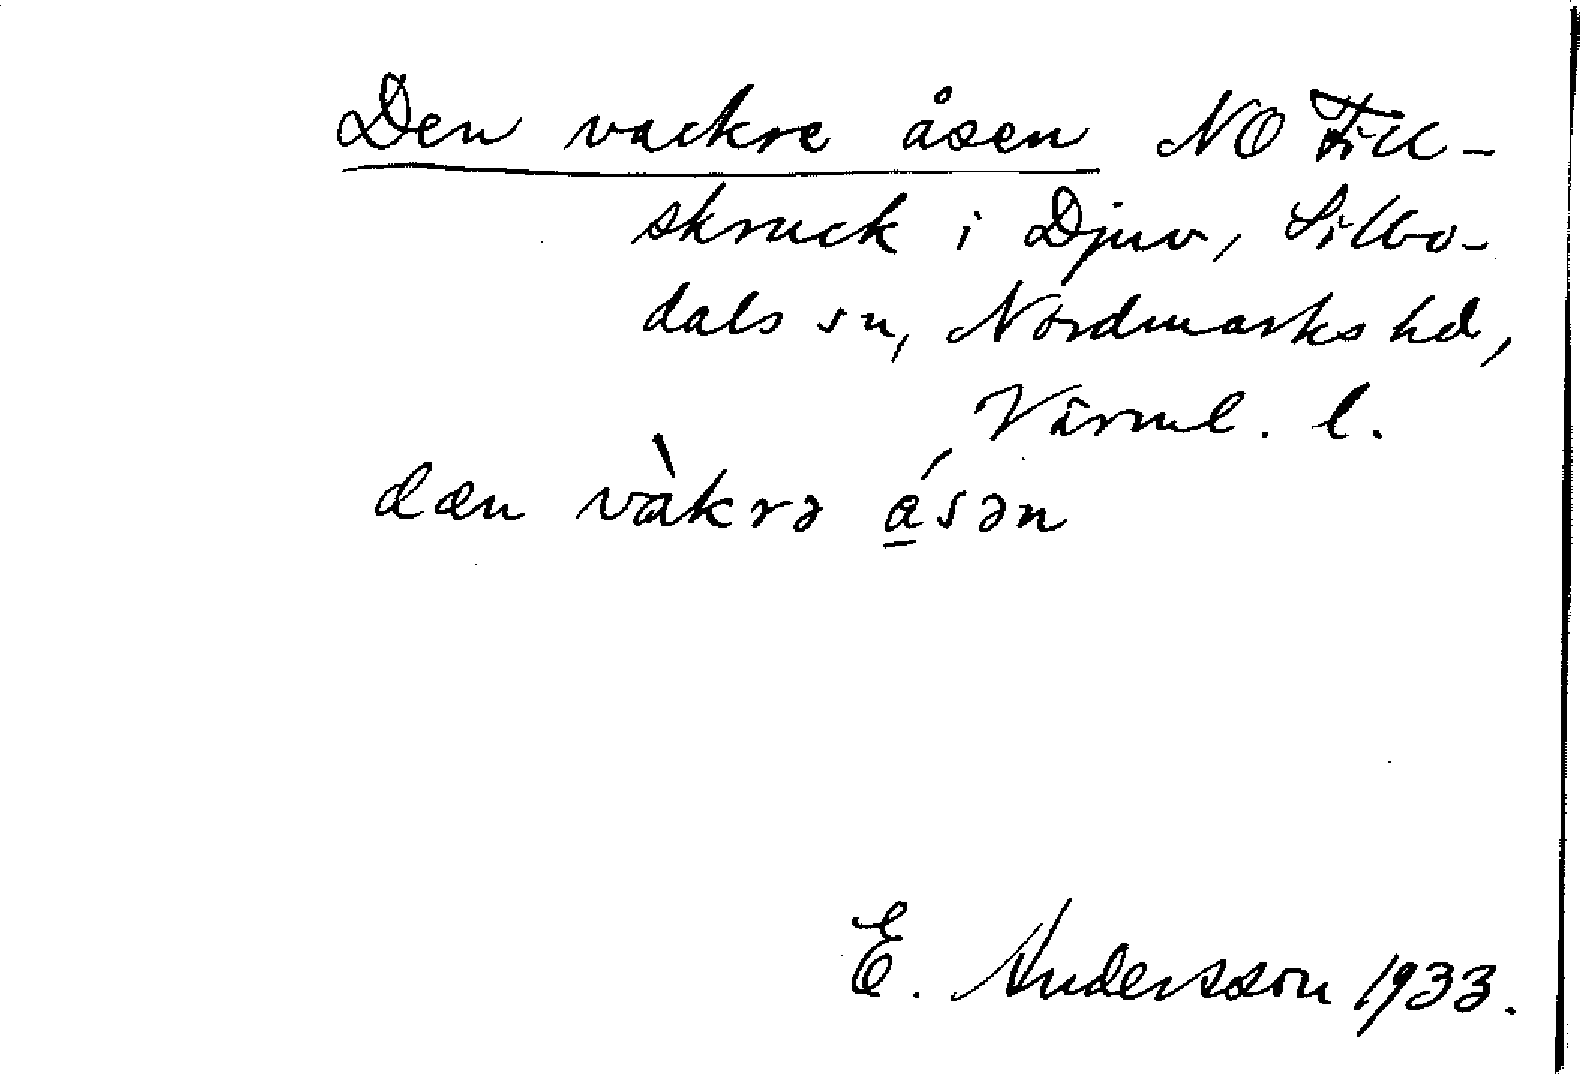 Den vackre åsen NO Fill-
skruck i Djuv, Silbo-
dals sn, Nordmarks hd,
Värml. l.
dæn vàkrə á̱sən
E. Andersson 1933.